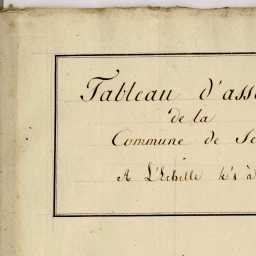 Tableau d'ass
de la
Commune de
A L'Echelle de 1 à